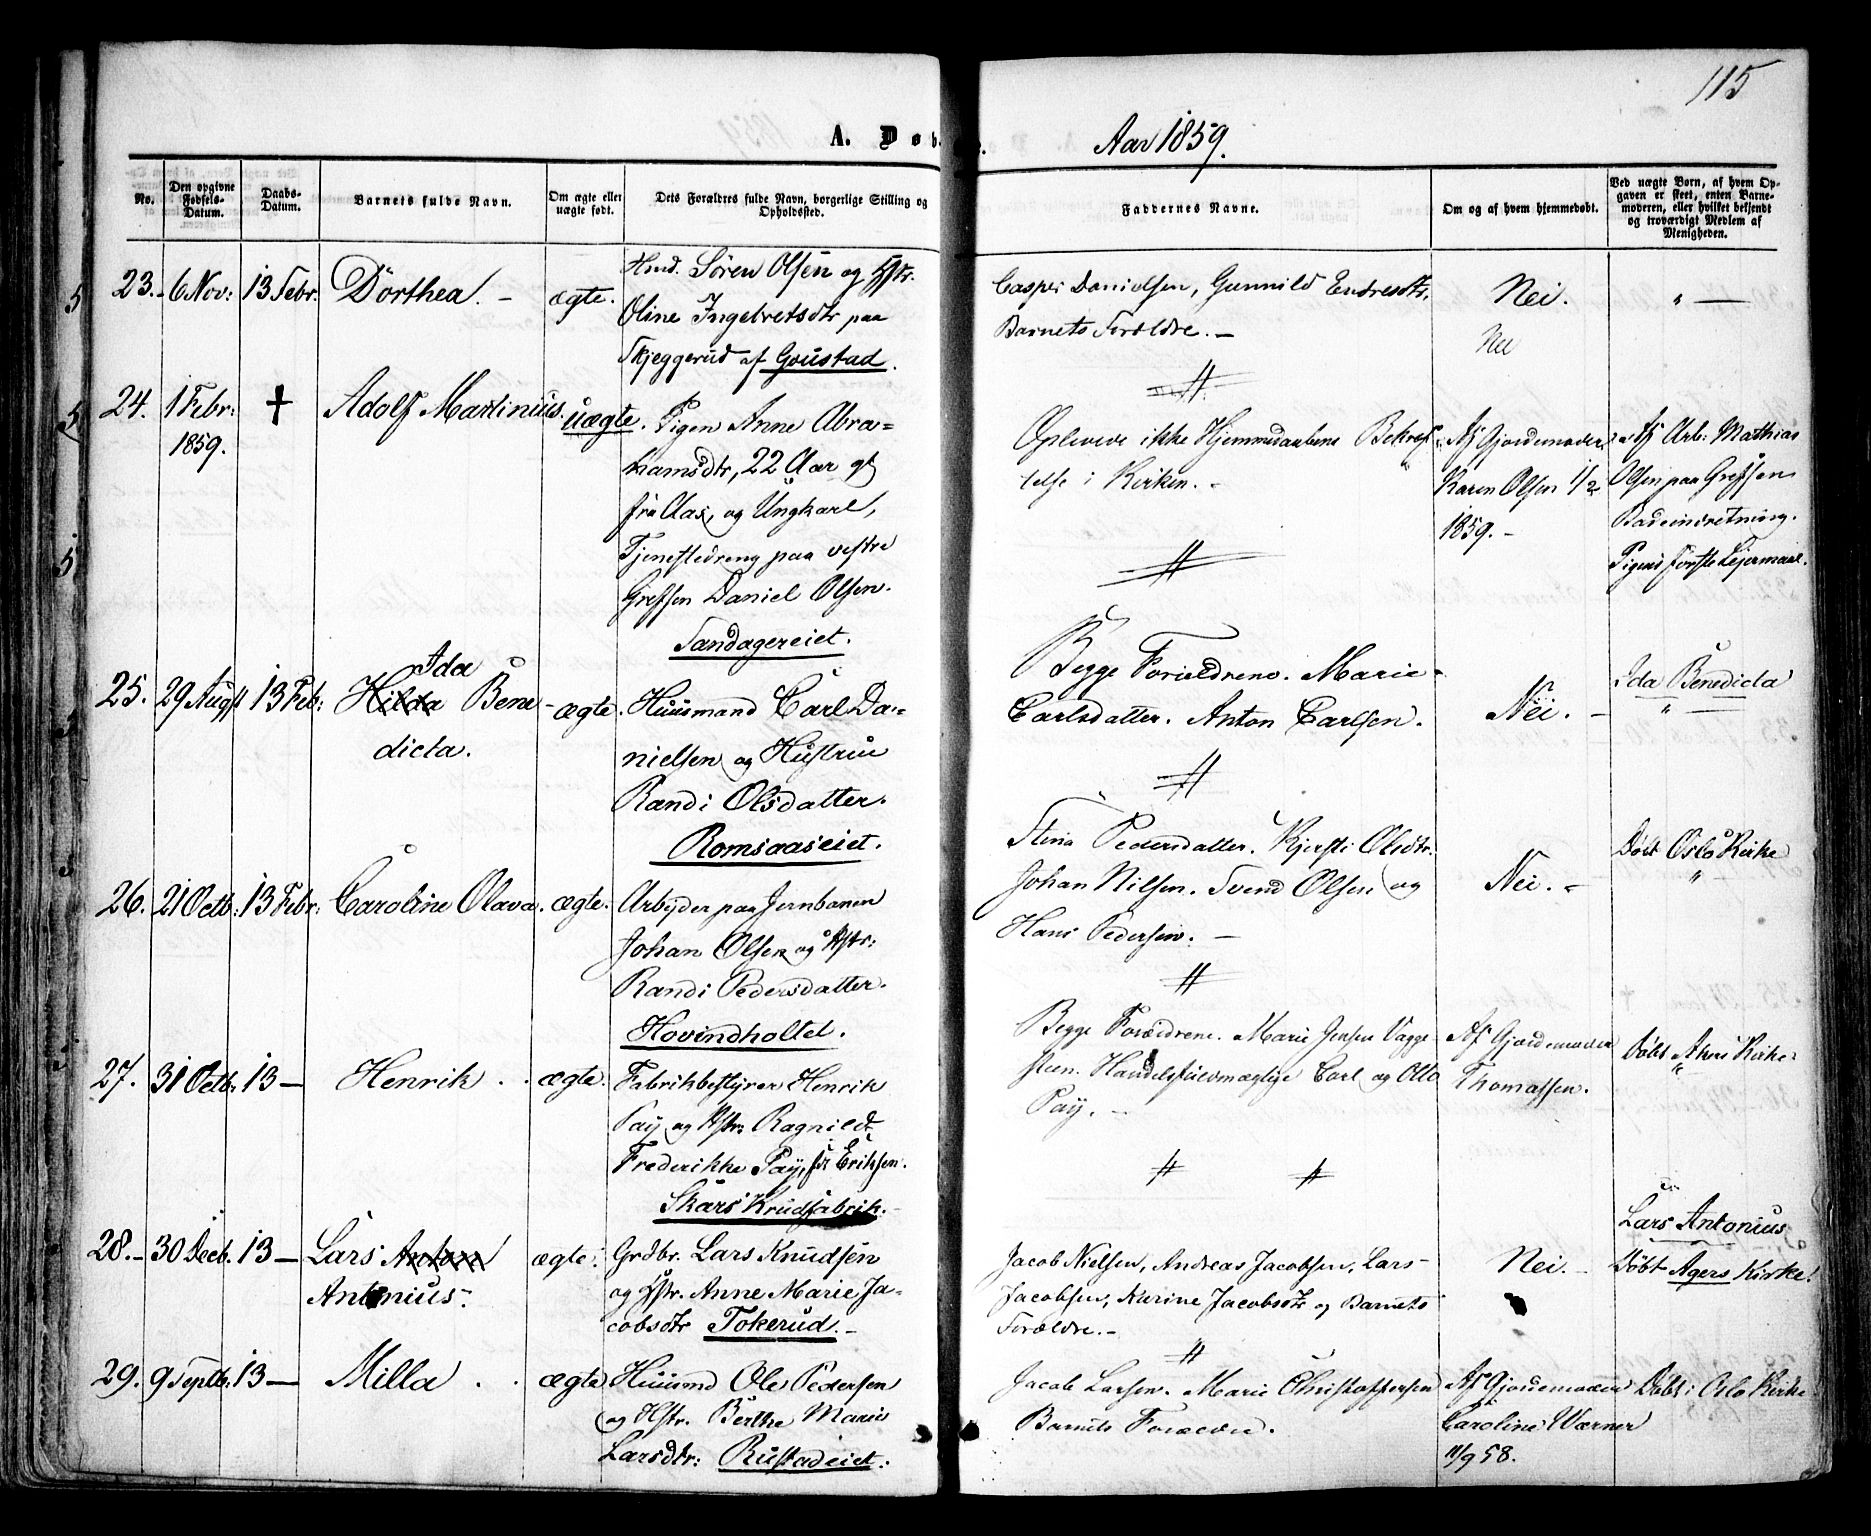 115
A. Døb. Aar 1859.
No.
Den opgivne Fødsels-Datum.
Daabs-Datum.
Barnets fulde Navn.
Om ægte eller uægte født.
Dets Forældres fulde Navn, borgerlige Stilling og Opholdssted.
Faddernes Navne.
Om og af hvem hjemmedøbt.
Ved uægte Børn, af hvem Opgaven er skeet, enten Barnemoderen, eller hvilket bekjendt og troværdigt Medlem af Menigheden.
23. 6 Nov: 13 Febr. Dorthea. – ægte.
Hmd. Søren Olsen og Hstr.
Oline Ingebretsdtr paa
Skjeggerud af Goustad.
Casper Danielsen, Gunnild Endresdtr,
Barnets Forældre. –
Nei.
Nei
" —
24. 1 Febr: 1859. † Adolf Martinius. uægte.
Pigen Anne Abra=
hamsdtr, 22 Aar gl
fra Aas, og Ungkarl,
Tjenestedreng paa vestre
Grefsen Daniel Olsen.
Oplevede ikke Hjemmedaabens Bekræf
telse i Kirken. –
Af Gjordemoder
Karen Olsen 1/2
1859. –
Af Arb: Mathias
Olsen paa Grefsen
Badeindretning.
Pigens første Lejermaal.
Sandagereiet.
25. 29 Augst 13 Feb: Hilda Ida Bene-
dicta. ægte.
Huusmand Carl Da=
nielsen og Hustrue
Randi Olsdatter.
Begge Forældrene. Marie
Carlsdatter. Anton Carlsen.
Nei. –
Ida Benedicta
"
Romsaaseiet.
26. 21 Octb: 13 Febr: Caroline Olava. ægte.
Arbeyder paa Jernbanen
Johan Olsen og Hstr:
Randi Pedersdatter.
Stina Pedersdatter. Kjersti Olsdtr.
Johan Nilsen. Svend Olsen og
Hans Pedersen. –
Nei. –
Døbt Oslo Kirke
"
Hovindholtet.
27. 31 Octb: 13 — Henrik . . ægte.
Fabrikbestyrer Henrik
Pay og Hstr: Ragnild
Frederikke Pay, f. Eriksen.
Begge Forældrene. Marie Jensen Vagge
steen. Handelsfuldmægtige Carl og Otto
Pay. –
Af Gjordemoder
Thomassen.
Døbt Akers Kirke
"
Skars Krudfabrik.
28. – 30 Decb. 13 — Lars Anton
Antonius. ægte.
Grdbr. Lars Knudsen
og Hstr. Anne Marie Ja-
cobsdtr Tokerud. –
Jacob Nielsen, Andreas Jacobsen, Lars
Jacobsen, Karine Jacobsdtr og Barnets
Forældre. –
Nei. –
Lars Antonius
Døbt Agers Kirke.
29. 9 Septb: 13 — Milla . . ægte
Huusmd Ole Pedersen
og Hstr. Berthe Marie
Larsdtr: Rustadeiet.
Jacob Larsen. Marie Christoffersen
Barnets Forældre.
Af Gjordemoder
Caroline Werner
11/9 58.
Døbt i Oslo Kirke